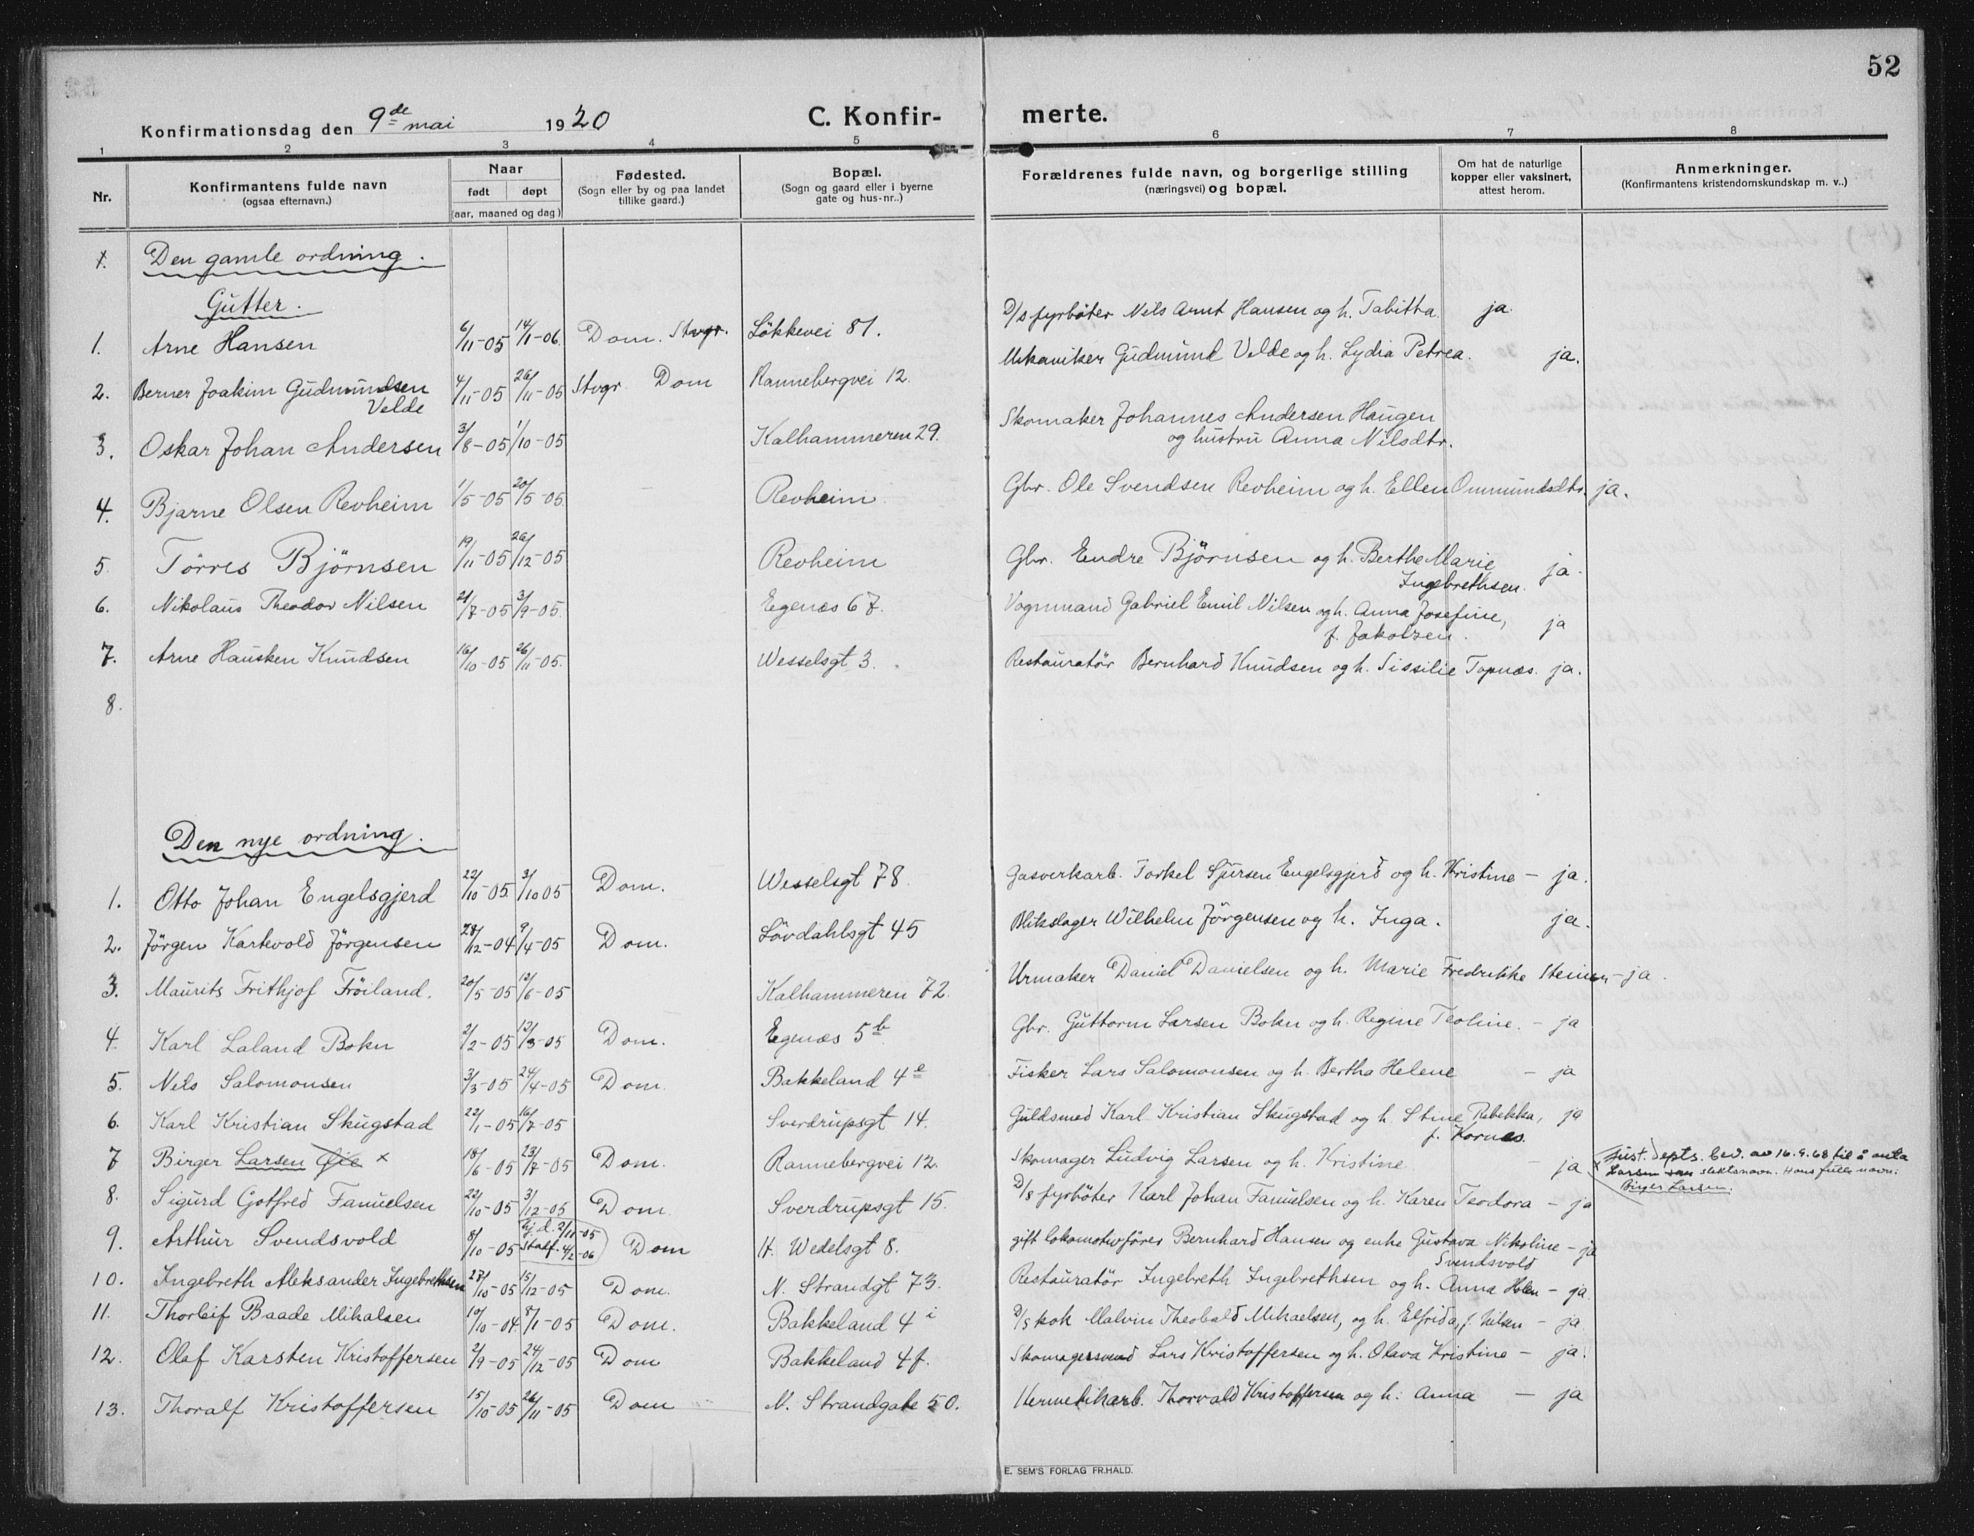 52
Konfirmationsdag den 9de mai 1920 C. Konfir- merte.
1 2 3 4 5 6 7 8
Nr. Konfirmantens fulde navn (ogsaa efternavn.) Naar født døpt (aar, maaned og dag) Fødested. (Sogn eller by og paa landet tillike gaard.) Bopæl. (Sogn og gaard eller i byerne gate og hus-nr..) Forældrenes fulde navn, og borgerlige stilling (næringsvei) og bopæl. Om hat de naturlige kopper eller vaksinert, attest herom. Anmerkninger. (Konfirmantens kristendomskundskap m. v..)
Den gamle ordning.
Gutter.
1. Arne Hansen 6/11-05 14/1-06 Dom. Stvgr. Løkkevei 81. D/s fyrbøter Nils Arnt Hansen og h. Tabitta. ja.
2. Berner Joakim Gudmundsen 4/11-05 26/11-05 Stvgr Dom Rannebergvei 12. Mekaniker Gudmund Velde og h. Lydia Petrea. ja.
Velde
3. Oskar Johan Andersen 3/8-05 1/10-05 Kalhammeren 29. Skomaker Johannes Andersen Haugen
og hustru Anna Nilsdtr.
4. Bjarne Olsen Revheim 1/5-05 20/5-05. Revheim Gbr. Ole Svendsen Revheim og h. Ellen Ommundsdtr. ja.
5. Tørres Bjørnsen 19/11-05 26/12-05 Revheim Gbr. Endre Bjørnsen og h. Berthe Marie ja.
Ingebrethsen.
6. Nikolaus Theodor Nilsen 21/7-05 3/9-05. Egenæs 67. Vognmand Gabriel Emil Nilsen og h. Anna Josefine, ja
f. Jakobzen.
7. Arne Hausken Knudsen 16/10-05 26/11-05. Wesselsgt 3. Restauratør Bernhard Knudsen og h. Sissilie Topnæs. ja.
8.
Den nye ordning.
1. Otto Johan Engelsgjerd 22/10-05 3/10 05 Dom. Wesselsgt 78. Gasverkarb. Torkel Sjursen Engelsgjerd og h. Kristine - ja.
2. Jørgen Kartevold Jørgensen 28/12-04 9/4-05 Dom. Løvdahlsgt 45 Blikslager Wilhelm Jörgensen og h. Inga. ja.
3. Maurits Frithjof Fröiland. 20/5-05 12/6-05 Kalhammeren 72. Urmaker Daniel Danielsen og h. Marie Fredrikke - ja.
4. Karl Laland Bokn 2/2-05 12/3-05 Dom. Egenæs 5b Gbr. Guttorm Larsen Bokn og h. Regine Teoline. - ja
5. Nils Salomonsen 3/3-05 24/4-05 Dom. Bakkeland 4e Fisker Lars Salomonsen og h. Bertha Helene - ja
6. Karl Kristian Skugstad 22/1-05 16/7-05 Sverdrupsgt 14. Guldsmed Karl Kristian Skugstad og h. Stine Rebekka, ja
f. Kornes.
7 Birger Larsen Øie x 18/6-05 23/7-05 Dom. Rannebergvei 12. Skomager Ludvig Larsen og h. Kristine. - ja x Just. depts. bev. av 16.9.68 til å anta
Larsen som slektsnavn. Hans fulle navn:
Birger Larsen.
8. Sigurd Gotfred Fanuelsen 22/10-05 3/12-05 Dom. Sverdrupsgt 15. D/s fyrbøter Karl Johan Fanuelsen og h. Karen Teodora - ja
9. Arthur Svendsvold 8/10-05 Hj.d. 2/11-05 Stadf. 4/2-06 Dom H. Wedelsgt 8. gift lokomotivfører Bernhard Hansen og enke Gustava Nikoline - ja
Svendsvold
10. Ingebreth Aleksander Ingebrethsen 27/10-05 15/12-05 Dom. N. Strandgt 73. Restauratør Ingebreth Ingebrethsen og h. Anna Holen - ja.
11. Thorleif Baade Mikalsen 10/10-04. 8/1-05 Dom. Bakkeland 4i D/s kok Malvin Theobald Mikaelsen, og h. Elfrida, f. Nilsen - ja
12. Olaf Karsten Kristoffersen 2/9-05 24/12-05 Dom Bakkeland 4f. Skomagersvend Lars Kristoffersen og h. Olava Kristine - ja.
13. Thoralf Kristoffersen 15/10-05 26/11-05 Dom N. Strandgate 50. Hermetikarb. Thorvald Kristoffersen og h. Anna - ja
E. SEM'S FORLAG FR.HALD.